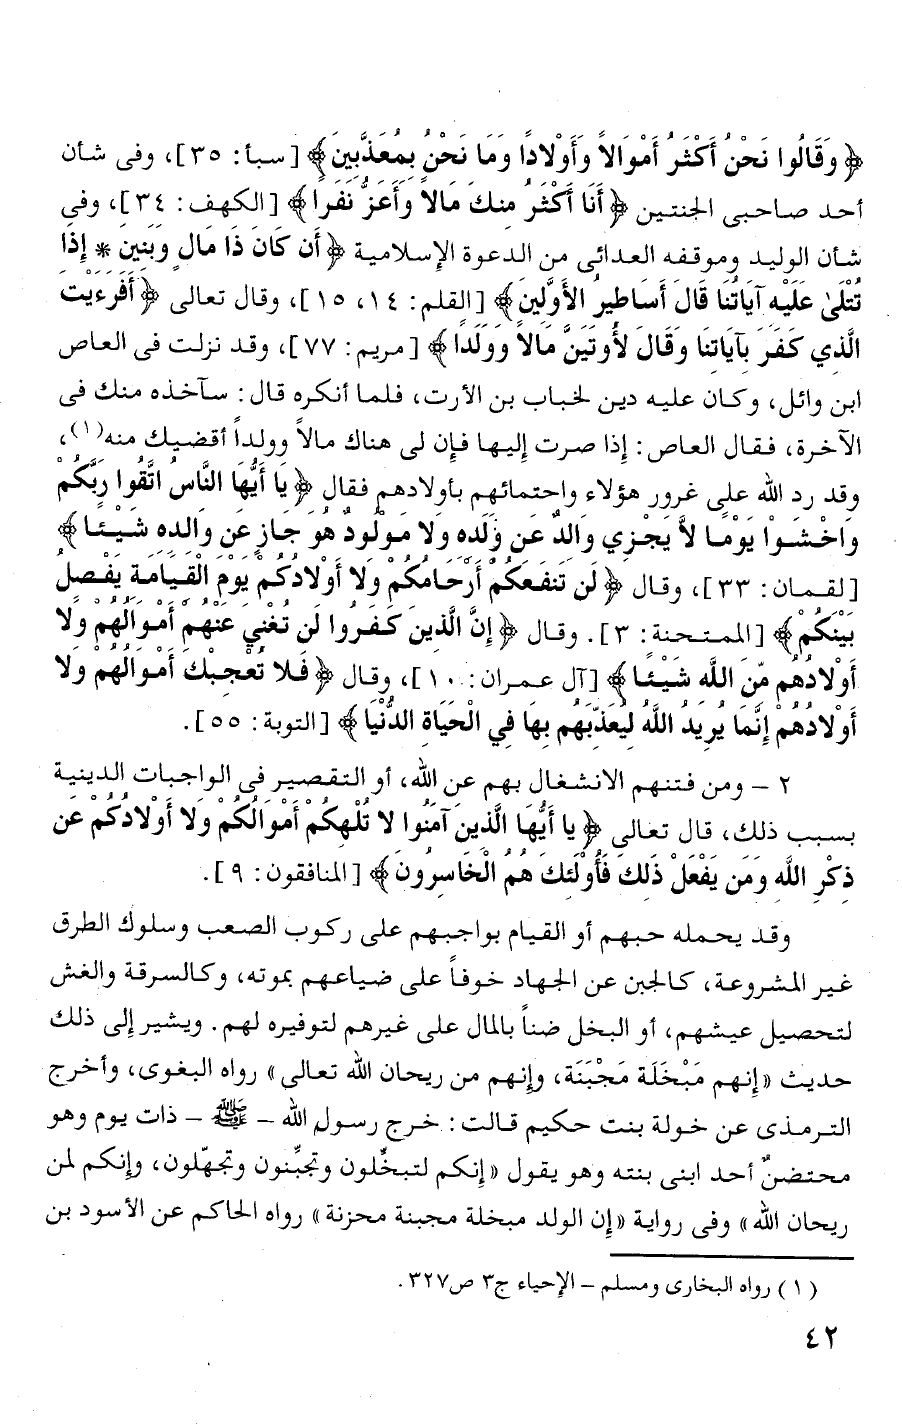 ﴿ وَقَالُوا نَحْنُ أَكْثَرُ أَمْوَالاً وَأَوْلاداً وَمَا نَحْنُ بِمُعَذَّبِينَ ﴾ [ سبأ : ٣٥ ]، وفى شأن
أحد صاحبى الجنتين ﴿ أَنَا أَكْثَرُ مِنكَ مَالاً وَأَعَزُّ نَفَراً ﴾ [ الكهف : ٣٤ ]، وفى
شأن الوليد وموقفه العدائى من الدعوة الإسلامية ﴿ أَن كَانَ ذَا مَالٍ وَبَنِينَ * إِذَا
تُتْلَىٰ عَلَيْهِ آيَاتُنَا قَالَ أَسَاطِيرُ الأَوَّلِينَ ﴾ [ القلم : ١٤، ١٥ ]، وقال تعالى ﴿ أَفَرَءَيْتَ
الَّذِي كَفَرَ بِآيَاتِنَا وَقَالَ لأُوتَيَنَّ مَالاً وَوَلَدًا ﴾ [ مريم : ٧٧ ]، وقد نزلت فى العاص
ابن وائل، وكان عليه دين لخباب بن الأرت، فلما أنكره قال : سآخذه منك فى
الآخرة، فقال العاص : إذا صرت إليها فإن لى هناك مالاً وولداً أقضيك منه(١)،
وقد رد الله على غرور هؤلاء واحتمائهم بأولادهم فقال ﴿ يَا أَيُّهَا النَّاسُ اتَّقُوا رَبَّكُمْ
وَاخْشَوْا يَوْمًا لاَّ يَجْزِي وَالِدٌ عَن وَلَدِهِ وَلا مَوْلُودٌ هُوَ جَازٍ عَن وَالِدِهِ شَيْئًا ﴾
[ لقمان : ٣٣ ]، وقال ﴿ لَن تَنفَعَكُمْ أَرْحَامُكُمْ وَلا أَوْلادُكُمْ يَوْمَ الْقِيَامَةِ يَفْصِلُ
بَيْنَكُمْ ﴾ [ الممتحنة : ٣ ]. وقال ﴿ إِنَّ الَّذِينَ كَفَرُوا لَن تُغْنِيَ عَنْهُمْ أَمْوَالُهُمْ وَلا
أَوْلادُهُم مِّنَ اللَّهِ شَيْئًا ﴾ [ آل عمران : ١٠ ]، وقال ﴿ فَلا تُعْجِبْكَ أَمْوَالُهُمْ وَلا
أَوْلادُهُمْ إِنَّمَا يُرِيدُ اللَّهُ لِيُعَذِّبَهُم بِهَا فِي الْحَيَاةِ الدُّنْيَا ﴾ [ التوبة : ٥٥ ].
٢ – ومن فتنهم الانشغال بهم عن الله، أو التقصير فى الواجبات الدينية
بسبب ذلك، قال تعالى ﴿ يا أَيُّهَا الَّذِينَ آمَنُوا لا تُلْهِكُمْ أَمْوَالُكُمْ وَلا أَوْلادُكُمْ عَن
ذِكْرِ اللَّهِ وَمَن يَفْعَلْ ذَلِكَ فَأُوْلَئِكَ هُمُ الْخَاسِرُونَ ﴾ [ المنافقون : ٩ ].
وقد يحمله حبهم أو القيام بواجبهم على ركوب الصعب وسلوك الطرق
غير المشروعة، كالجبن عن الجهاد خوفاً على ضياعهم بموته، وكالسرقة والغش
لتحصيل عيشهم، أو البخل ضناً بالمال على غيرهم لتوفيره لهم. ويشير إلى ذلك
حديث « إنهم مَبْخَلَة مَجْبَنَة، وإنهم من ريحان الله تعالى » رواه البغوى، وأخرج
الترمذى عن خولة بنت حكيم قالت : خرج رسول الله – ﷺ – ذات يوم وهو
محتضنٌ أحد ابنى بنته وهو يقول « إنكم لتبخِّلون وتجبِّنون وتجهّلون، وإنكم لمن
ريحان الله » وفى رواية « إن الولد مبخلة مجبنة محزنة » رواه الحاكم عن الأسود بن
( ١ ) رواه البخارى ومسلم – الإحياء ج٣ ص٣٢٧ .
٤٢